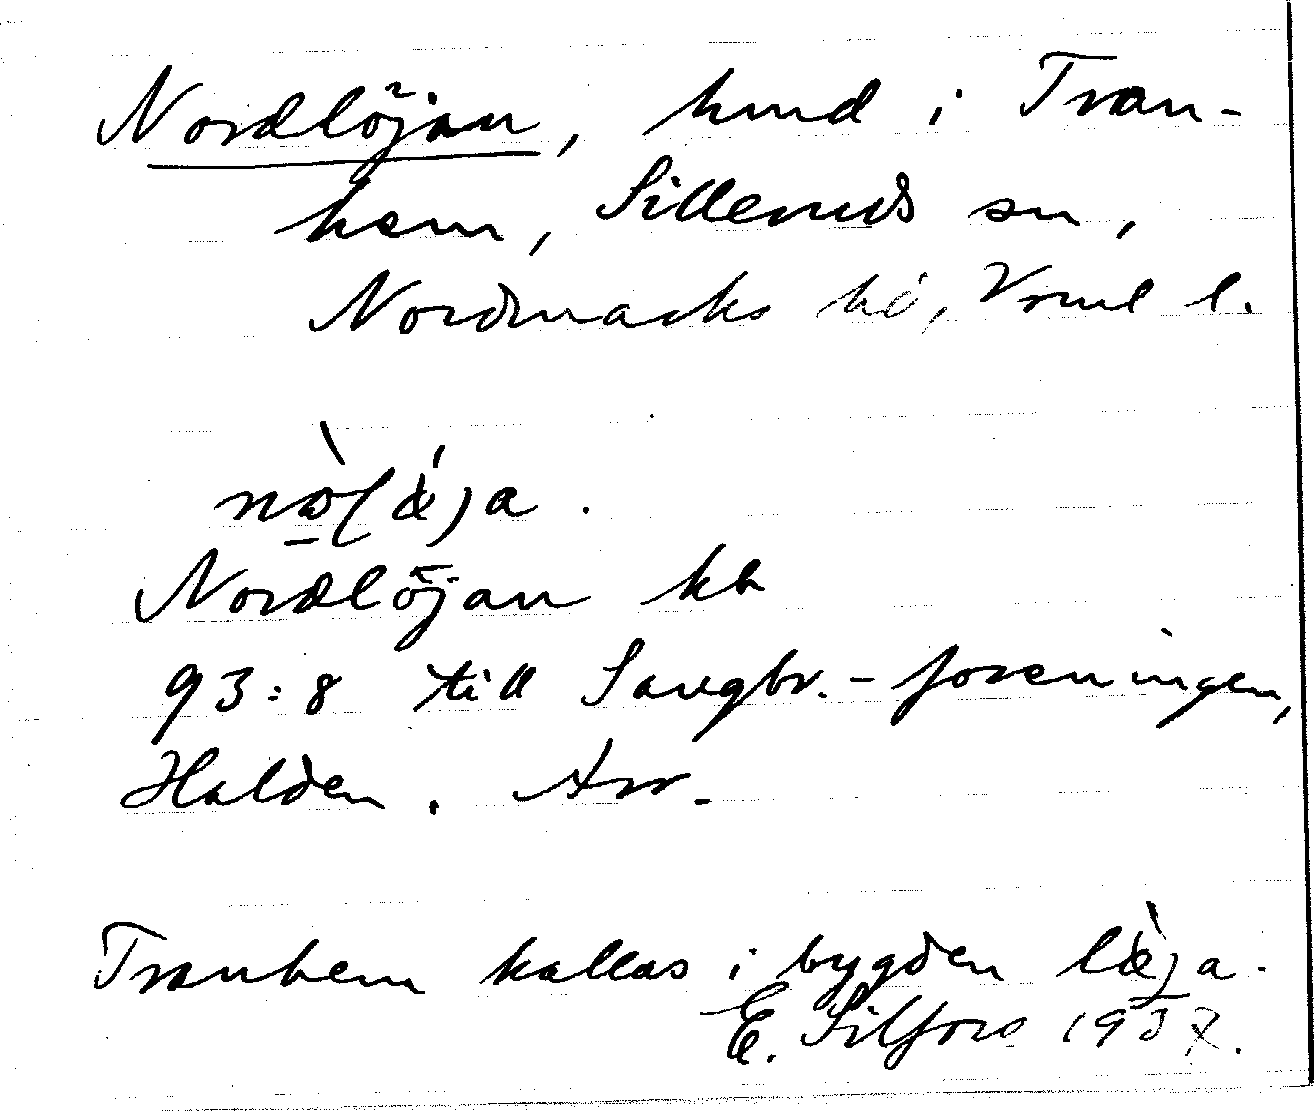 Nordlöjan, hmd i Tran-
hem, Silleruds sn,
Nordmarks hd, Vrml l.
nò̱læ̀́ja.
Nordlöjan kb
93:8 till Saugbr.-foreningen,
Halden. Arr.
Tranhem kallas i bygden læ̀ja.
E. Silfors 1937.